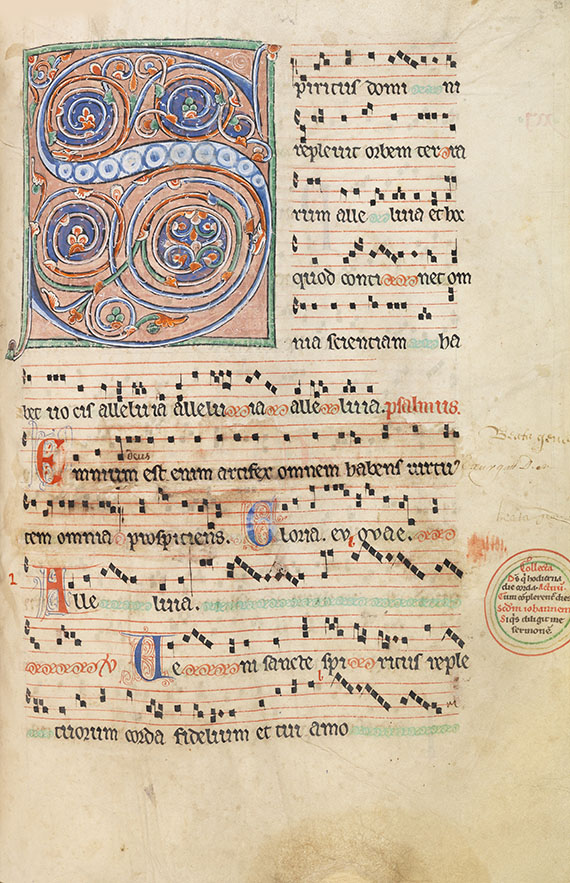 Spiritus domi ni
replevit orbem terra
rum alle luia et hoc
quod conti net om
nia scientiam ha
bet vocis alleluia alleluia alle luia. psalmus.
deus
Omnium est enim artifex omnem habens virtu
tem omnia prospiciens. Gloria. euouae.
Alle luia.
V Ve ni sancte spi ritus reple
tuorum corda fidelium et tui amo
Collecta
Ds q hodierna
die corda. Actuu
Cum coplerent dies
Scdm iohannem
Siqs diligit me
sermone.
Beata